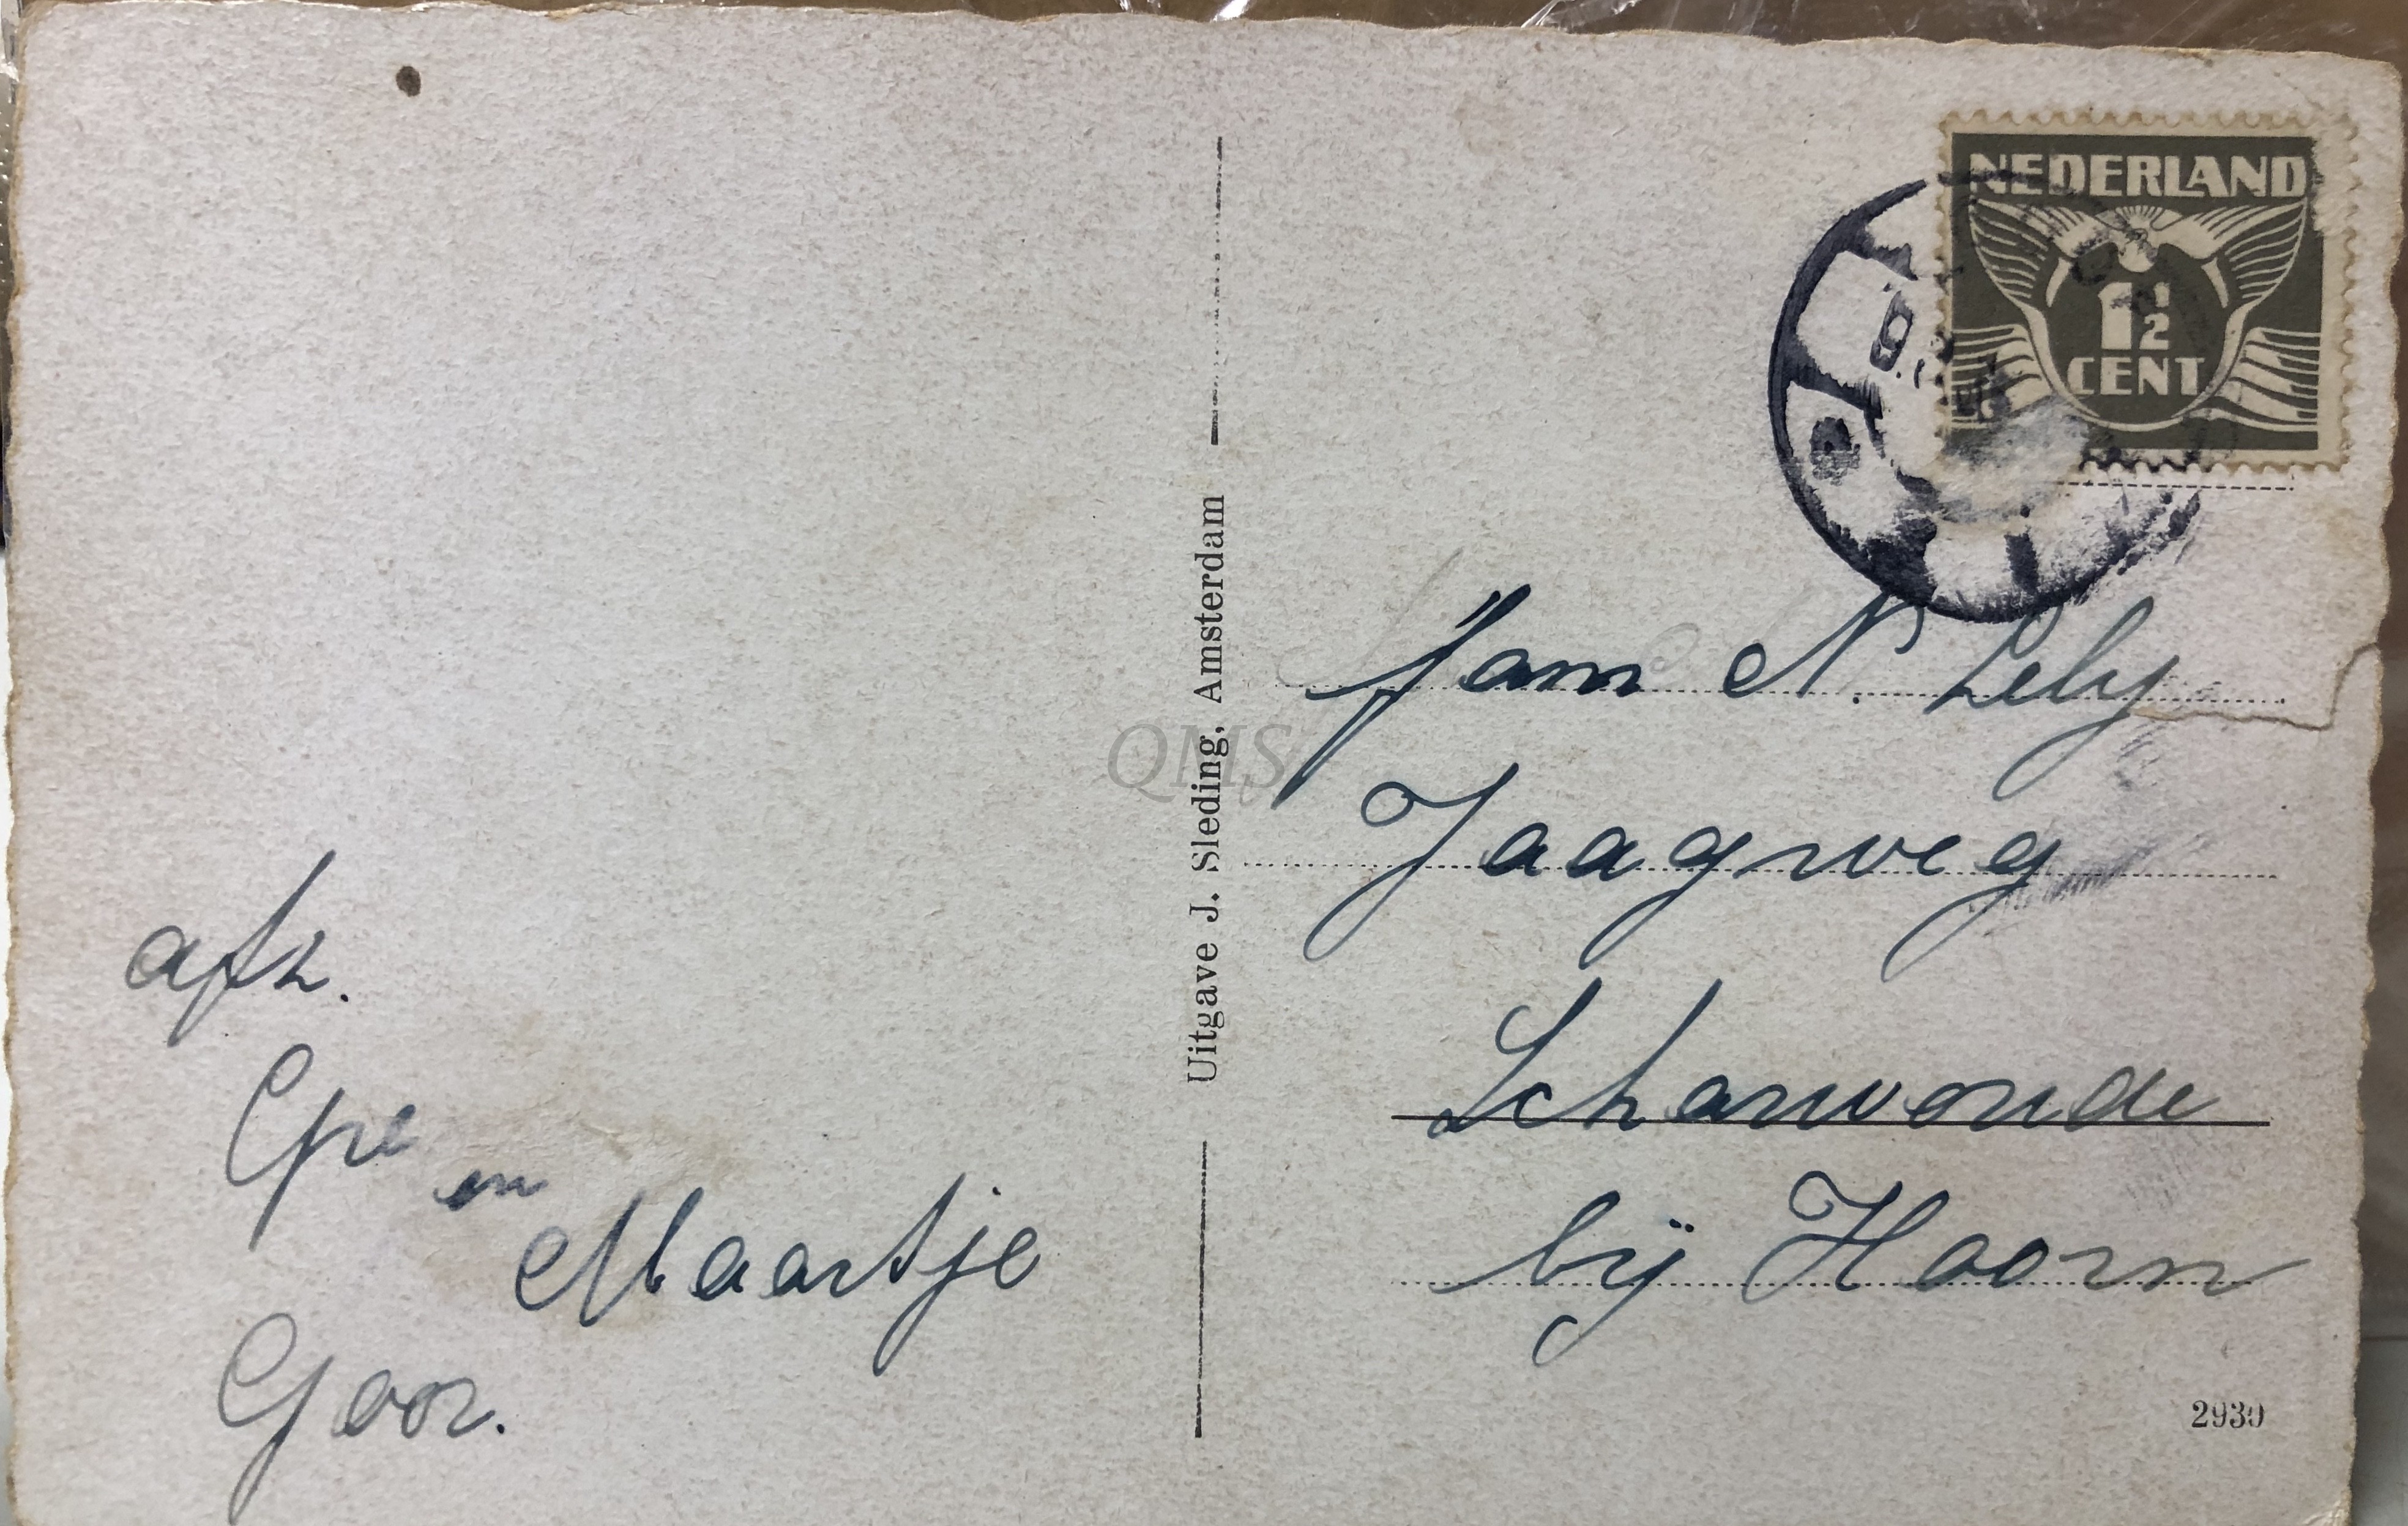 afz.
Gré
en
Maartje
Goor.
Uitgave J. Sleding, Amsterdam
QMS
NEDERLAND
1½
CENT
Fam N. Lely
Jaagweg
Scharwoude
bij Hoorn
2930